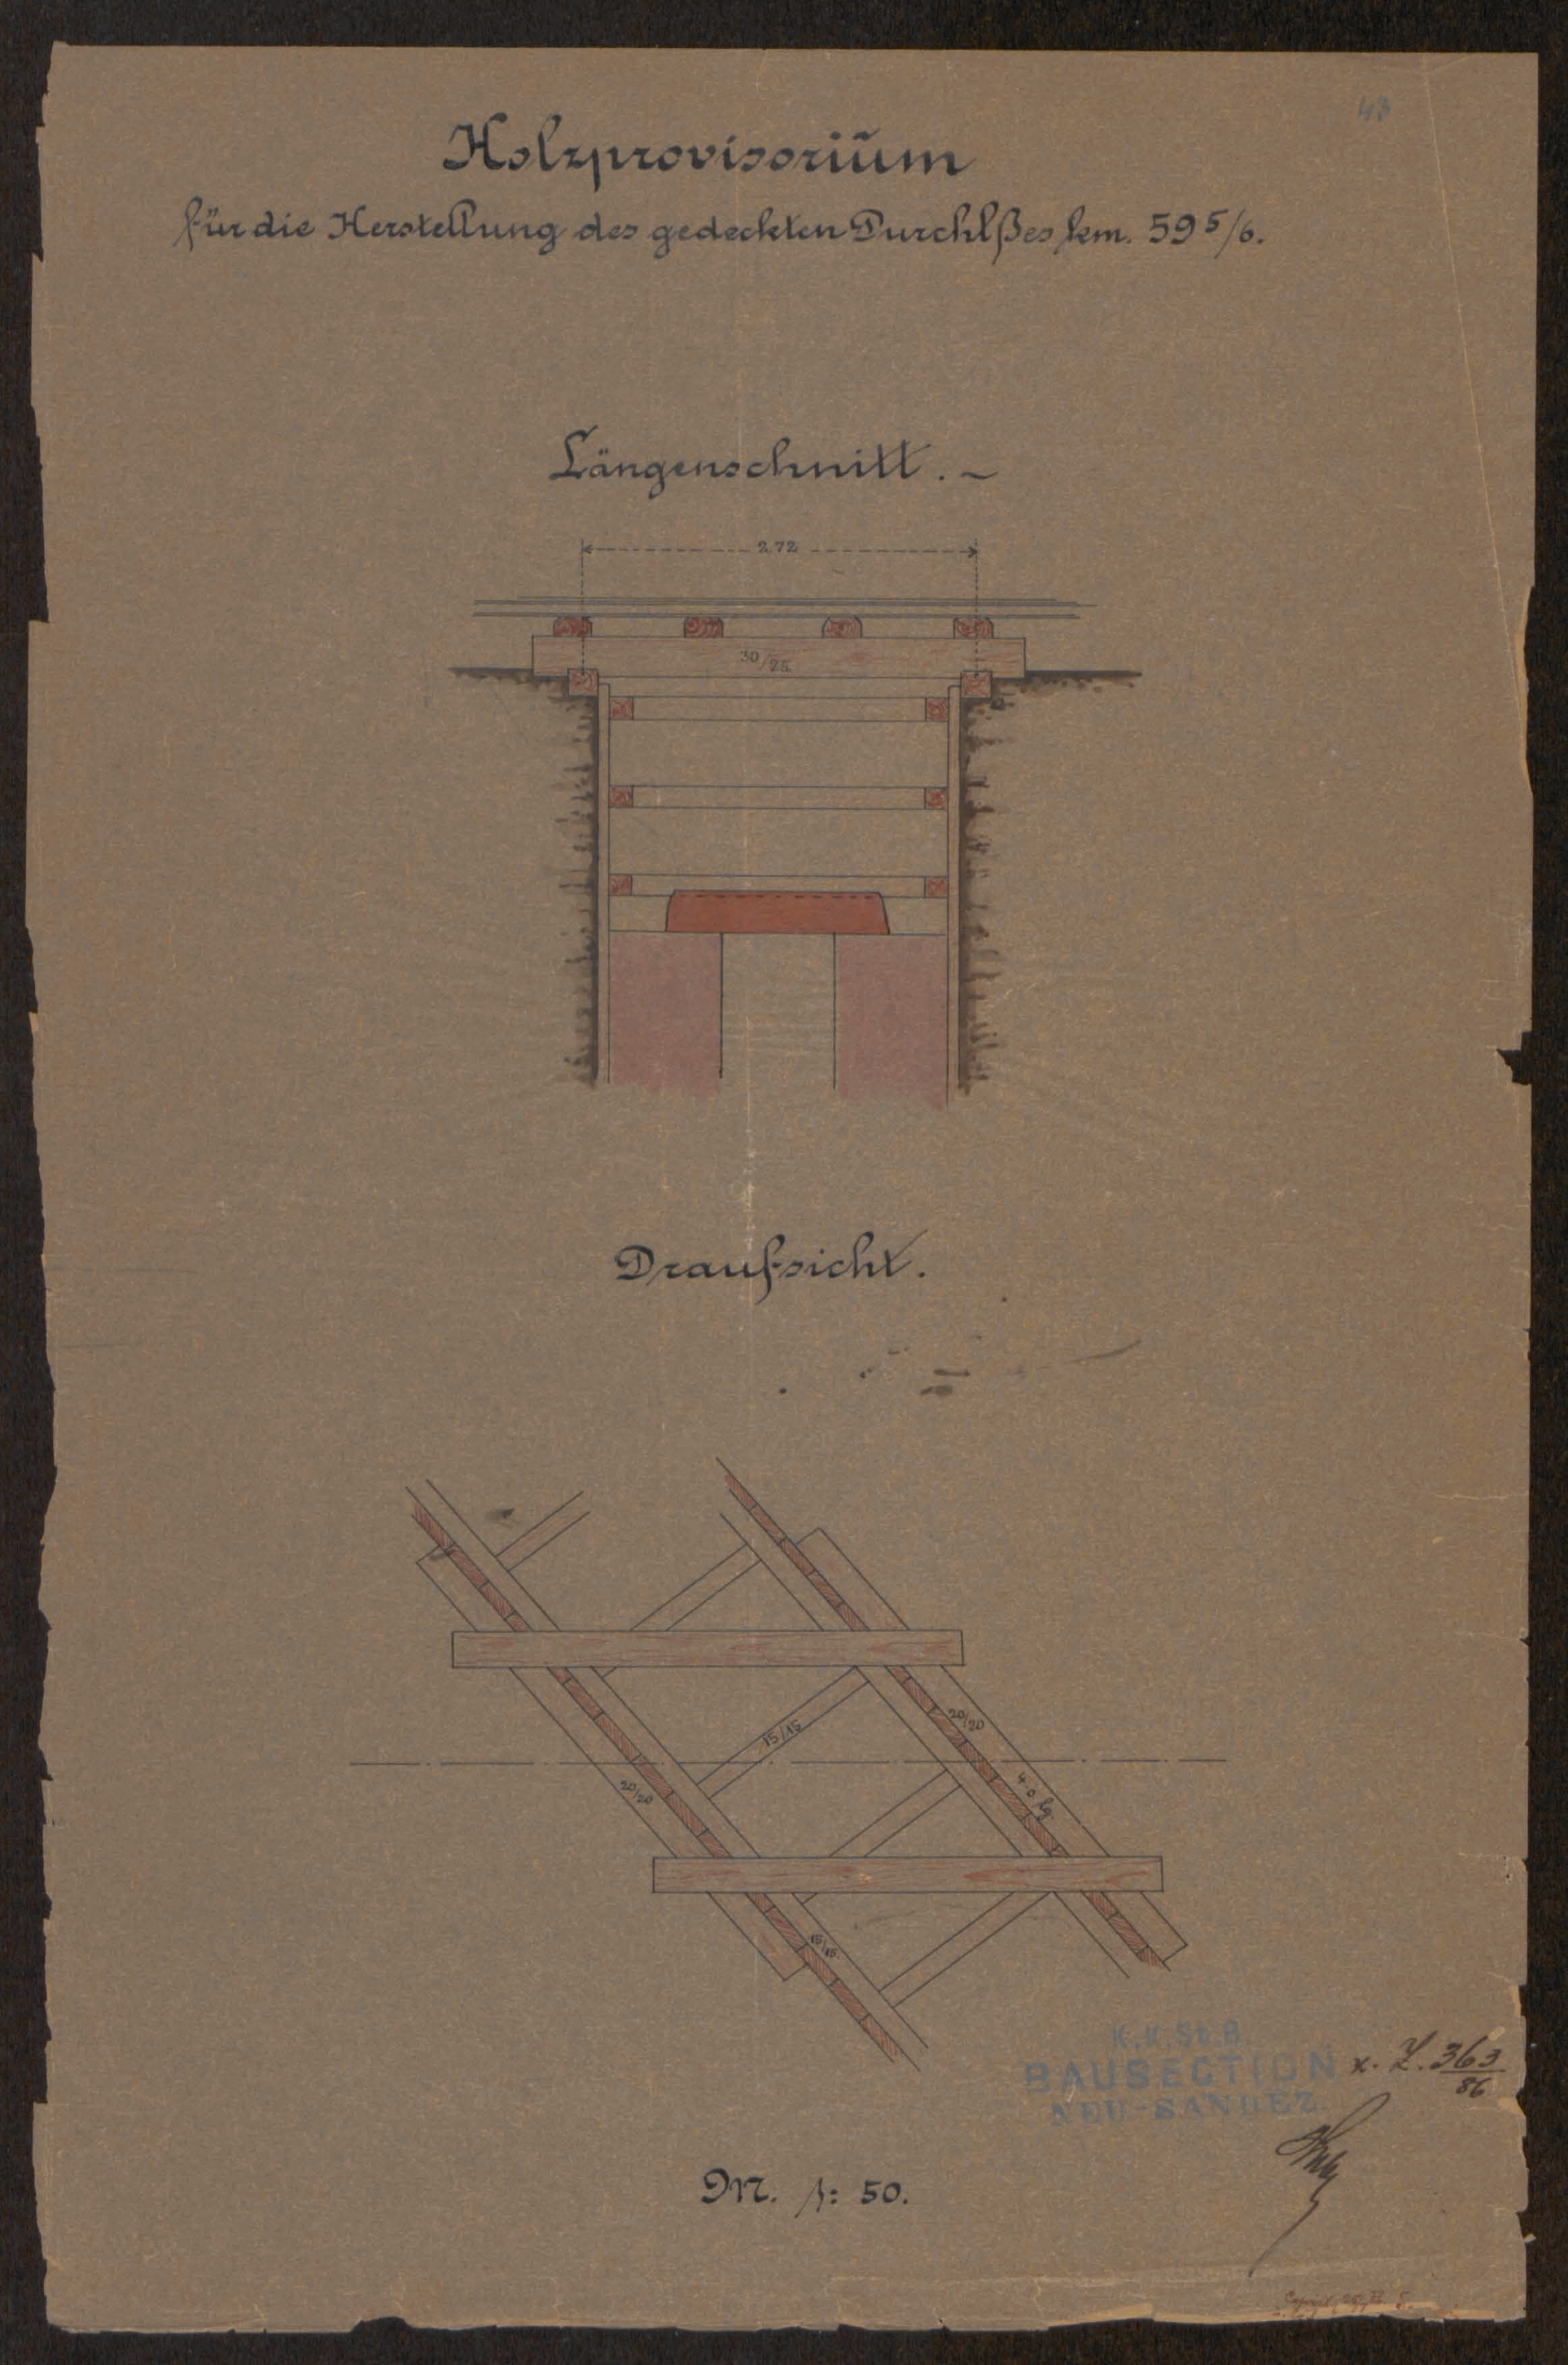 43
Holzprovisoriūm
für die Herstellung des gedeckten Durchlßes km. 59 5/6.
Längenschnitt. ~
2.72
30/25
Draufsicht.
15/15
20/20
20/20
4.0 lg.
15/15.
K.K.St.B.
BAUSECTION
NEU-SANDEZ
x. Z. 363/86
M. 1: 50.